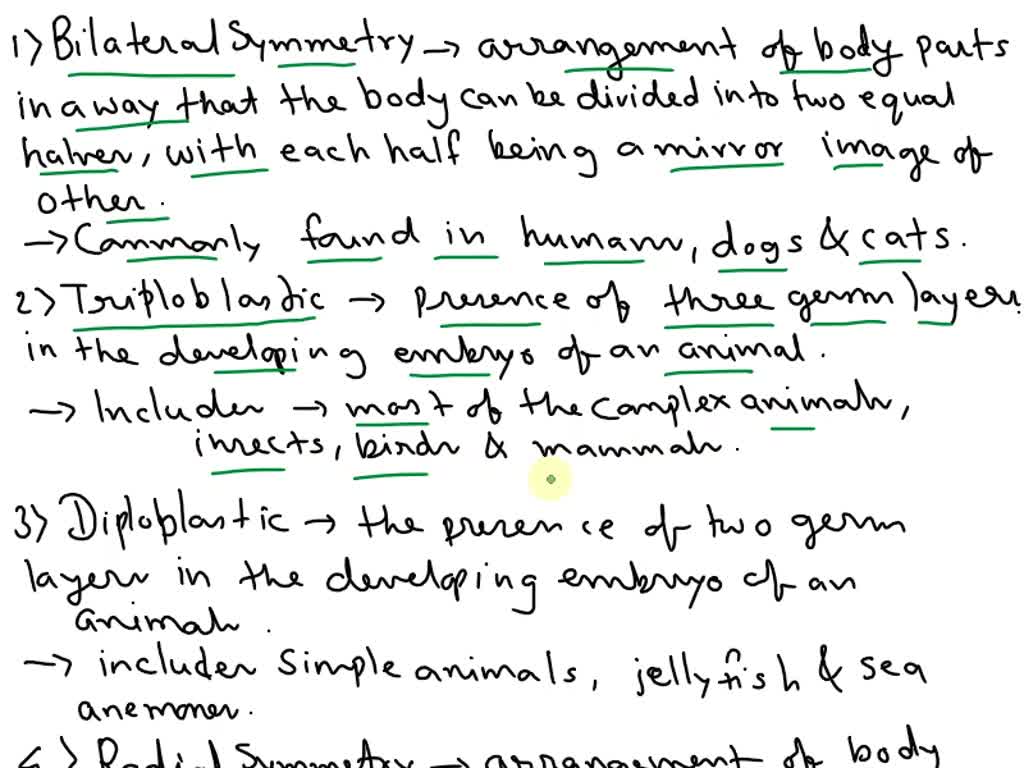 1) Bilateral Symmetry → arrangement of body parts
in a way that the body can be divided into two equal
halves, with each half being a mirror image of
other.
→ Commonly found in humans, dogs & cats.
2) Triploblastic → presence of three germ layers
in the developing embryo of an animal.
→ Includes → most of the complex animals,
insects, birds & mammals.
3) Diploblastic → the presence of two germ
layers in the developing embryo of an
animals.
→ includes simple animals, jellyfish & sea
anemones.
4) Radial Symmetry → arrangement of body